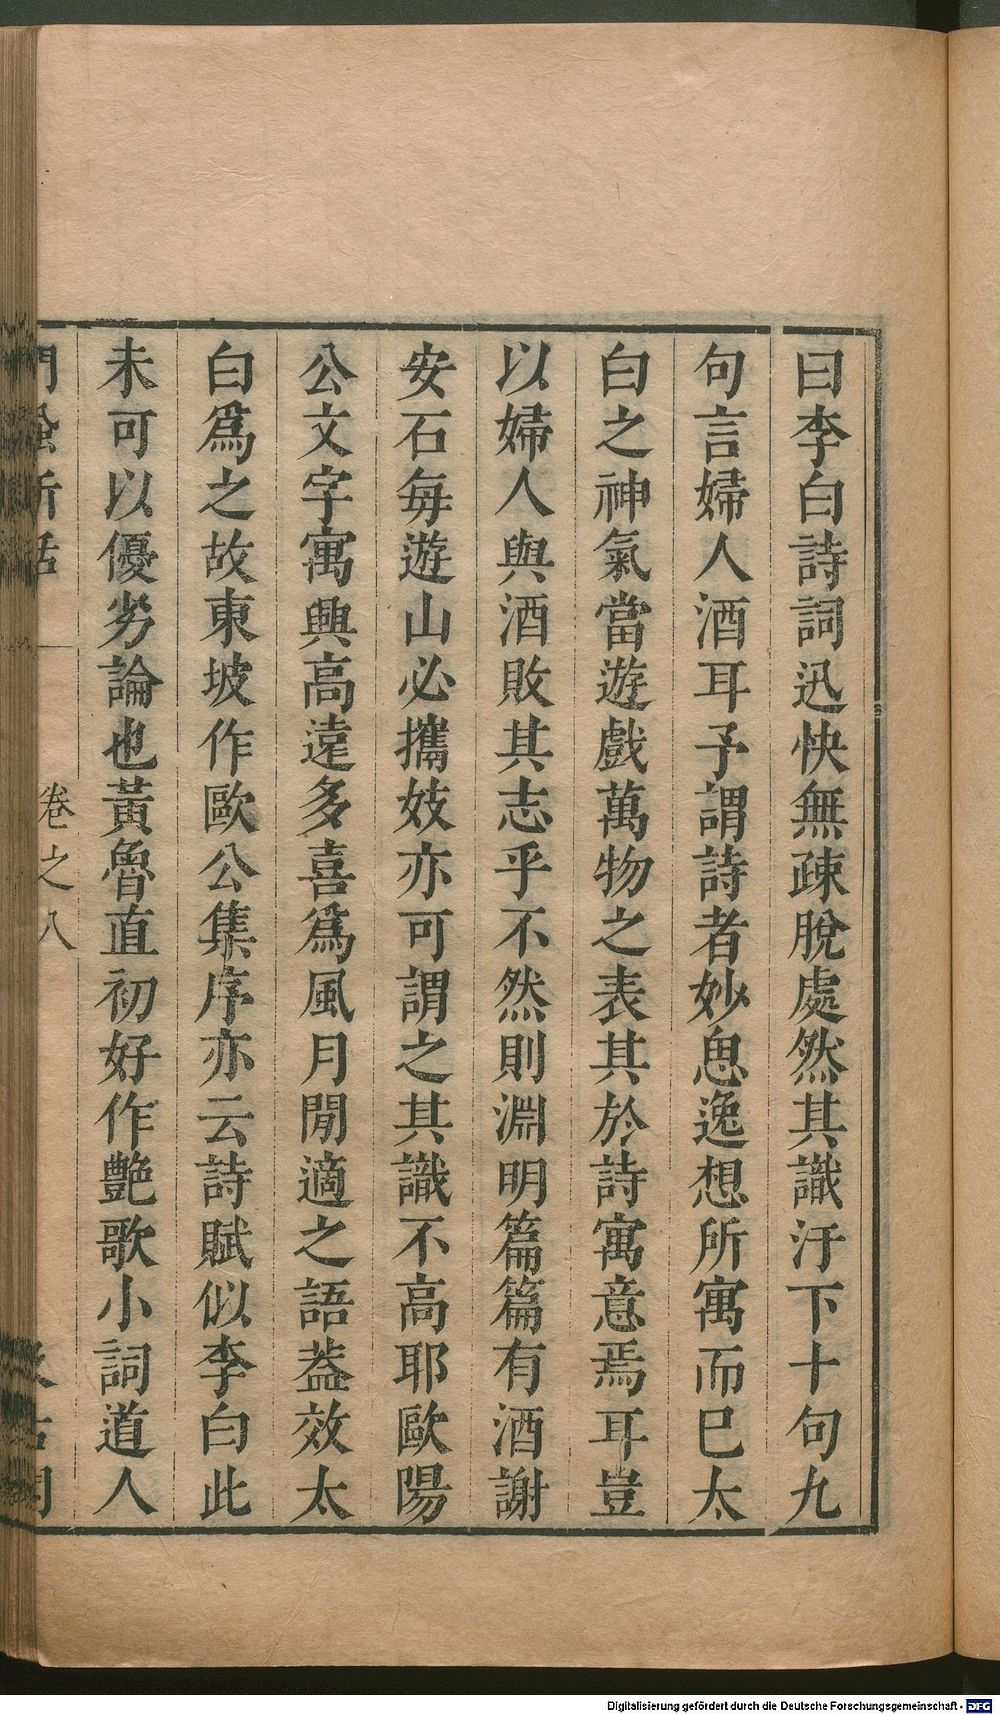 曰李白詩詞迅快無疎脫處然其識汙下十句九
句言婦人酒耳予謂詩者妙思逸想所寓而已太
白之神氣當遊戲萬物之表其於詩寓意焉耳豈
以婦人與酒敗其志乎不然則淵明篇篇有酒謝
安石每遊山必攜妓亦可謂之其識不高耶歐陽
公文字寓興高遠多喜爲風月閒適之語葢效太
白爲之故東坡作歐公集序亦云詩賦似李白此
未可以優劣論也黃魯直初好作艶歌小詞道人
門蝨新話 卷之八
Digitalisierung gefördert durch die Deutsche Forschungsgemeinschaft - DFG